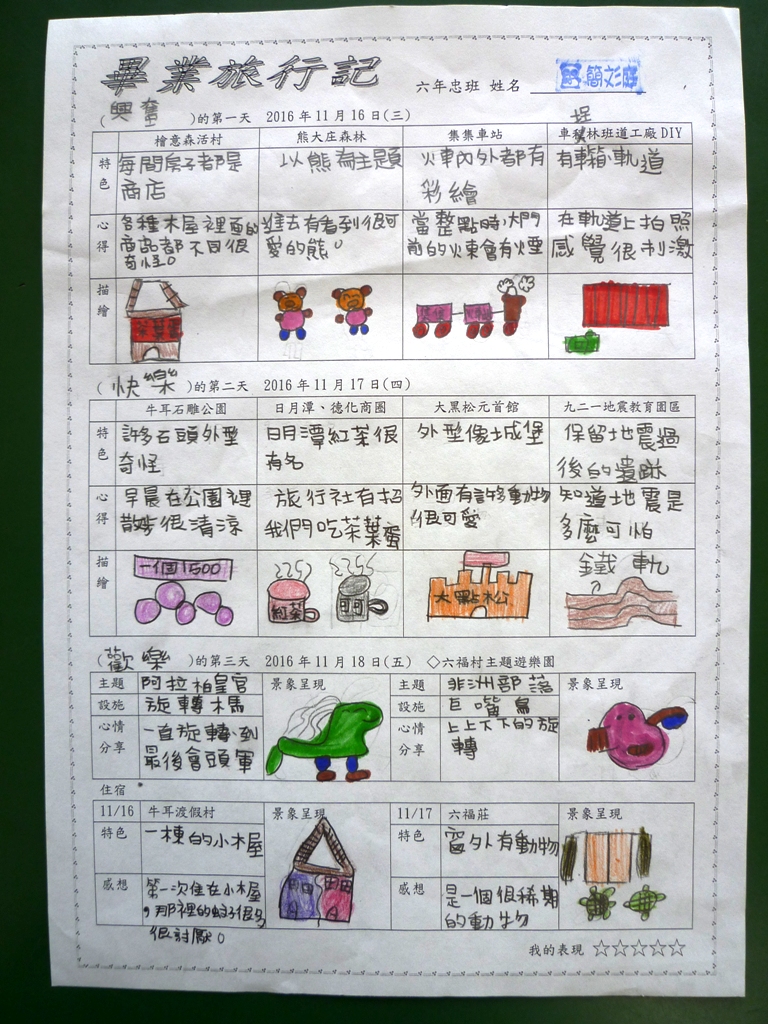 畢業旅行記
六年忠班 姓名 簡彣庭
(興奮)的第一天 2016年11月16日(三)
檜意森活村 熊大庄森林 集集車站 車埕林班道工廠DIY
特色 每間房子都是商店 以熊為主題 火車內外都有彩繪 有車箱、軌道
心得 各種木屋裡面的商品都不同很奇怪。 進去有看到很可愛的熊。 當整點時,大門前的火車會有煙 在軌道上拍照感覺很刺激
描繪
(快樂)的第二天 2016年11月17日(四)
牛耳石雕公園 日月潭、德化商圈 大黑松元首館 九二一地震教育園區
特色 許多石頭外型奇怪 日月潭紅茶很有名 外型像城堡 保留地震過後的遺跡
心得 早晨在公園裡散步很清涼 旅行社有招我們吃茶葉蛋 外面有許多動物很可愛 知道地震是多麼可怕
描繪 一個1500 紅茶 可可 大黑松 鐵軌
(歡樂)的第三天 2016年11月18日(五) ◇六福村主題遊樂園
主題 阿拉柏皇宮 景象呈現 主題 非洲部落 景象呈現
設施 旋轉木馬 設施 巨嘴鳥
心情分享 一直旋轉,到最後會頭軍 心情分享 上上下下的旋轉
住宿
11/16 牛耳渡假村 景象呈現 11/17 六福莊 景象呈現
特色 一棟的小木屋 特色 窗外有動物
感想 第一次住在小木屋,那裡的蚊子很多很討厭。 感想 是一個很稀期的動物
我的表現 ☆☆☆☆☆